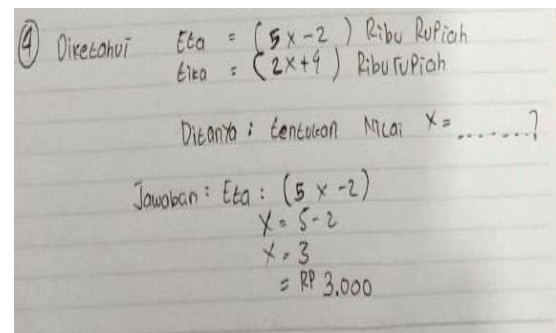 ④ Diketahui Eta = (5x-2) Ribu Rupiah
tika = (2x+4) Ribu rupiah
Ditanya : tentukan Nilai x = ........?
Jawaban : Eta : (5x-2)
x = 5-2
x = 3
= RP 3.000